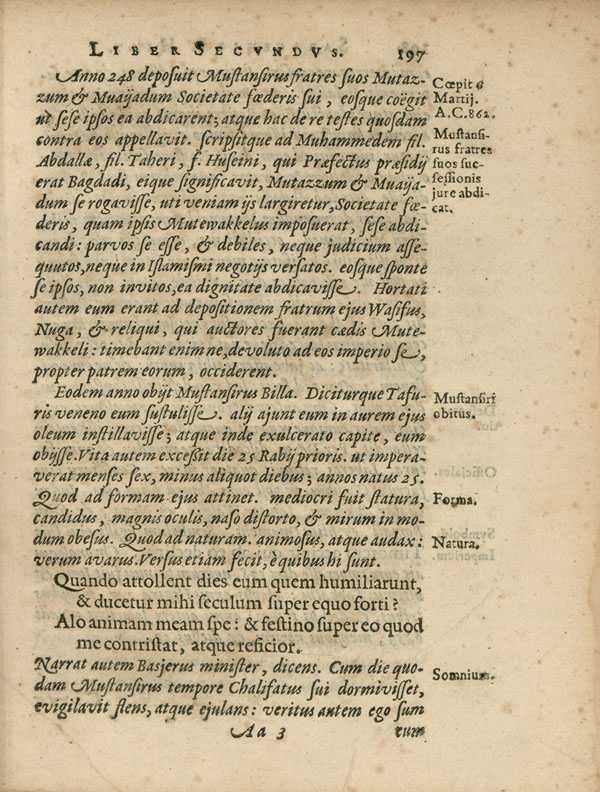 LIBER SECVNDVS. 197
Anno 248 deposuit Mustansirus fratres suos Mutaz-
zum & Muaijadum Societate fœderis sui, eosque coëgit
ut sese ipsos ea abdicarent; atque hac de re testes quosdam
contra eos appellavit. scripsitque ad Muhammedem fil.
Abdallæ, fil. Taheri, f. Huseini, qui Præfectus præsidij
erat Bagdadi, eique significavit, Mutazzum & Muaija-
dum se rogavisse, uti veniam ijs largiretur, Societate fœ-
deris, quam ipsis Mutewakkelus imposuerat, sese abdi-
candi: parvos se esse, & debiles, neque judicium asse-
quutos, neque in Islamismi negotijs versatos. eosque sponte
se ipsos, non invitos, ea dignitate abdicavisse. Hortati
autem eum erant ad depositionem fratrum ejus Wasifus,
Nuga, & reliqui, qui auctores fuerant cædis Mute-
wakkeli: timebant enim ne, devoluto ad eos imperio se,
propter patrem eorum, occiderent.
Eodem anno obijt Mustansirus Billa. Diciturque Tafu-
ris veneno eum sustulisse. alij ajunt eum in aurem ejus
oleum instillavisse; atque inde exulcerato capite, eum
obijsse. Vita autem excessit die 25 Rabij prioris. ut impera-
verat menses sex, minus aliquot diebus; annos natus 25.
Quod ad formam ejus attinet. mediocri fuit statura,
candidus, magnis oculis, naso distorto, & mirum in mo-
dum obesus. Quod ad naturam. animosus, atque audax:
verum avarus. Versus etiam fecit, è quibus hi sunt.
Quando attollent dies eum quem humiliarunt,
& ducetur mihi seculum super equo forti?
Alo animam meam spe: & festino super eo quod
me contristat, atque reficior.
Narrat autem Basjerus minister, dicens. Cum die quo-
dam Mustansirus tempore Chalifatus sui dormivisset,
evigilavit flens, atque ejulans: veritus autem ego sum
Aa 3 eum
Cœpit 6
Martij.
A.C. 862.
Mustansi-
rus fratres
suos suc-
sessionis
jure abdi-
cat.
Mustansiri
obitus.
Forma.
Natura.
Somnium.